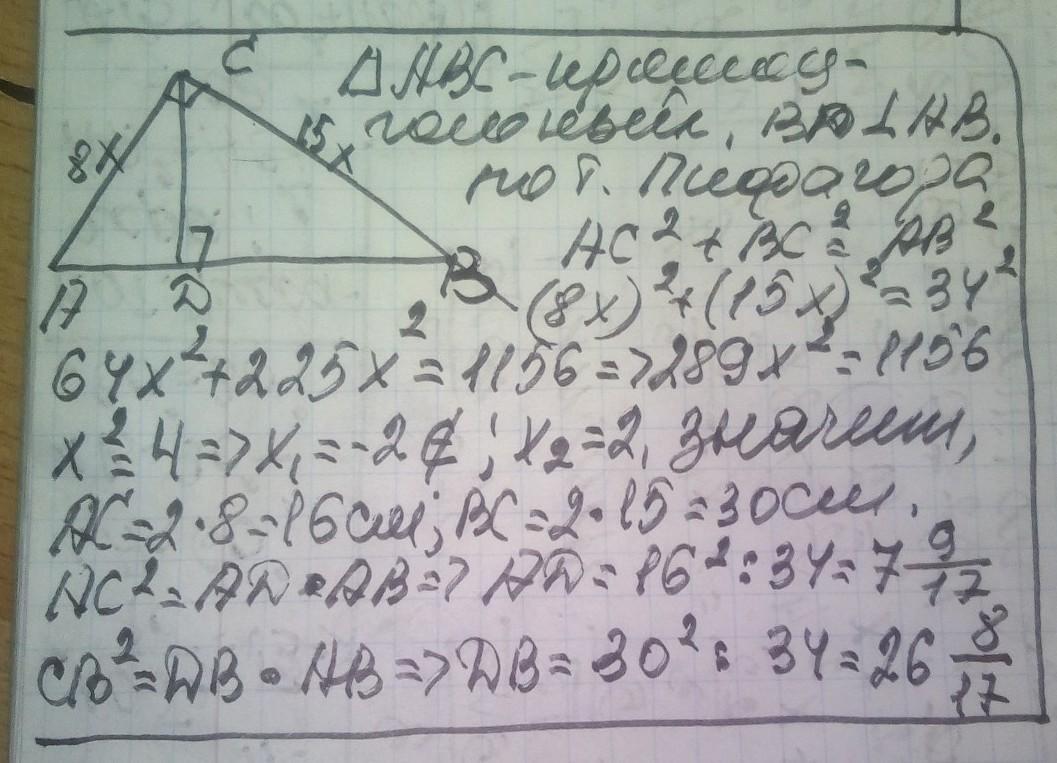 C
8x
15x
A
D
B
△ABC - прямоу-
гольный, BD ⊥ AB.
по т. Пифагора
AC² + BC² = AB²
(8x)² + (15x)² = 34²
64x² + 225x² = 1156 => 289x² = 1156
x² = 4 => x₁ = -2 ∉; x₂ = 2, значит,
AC = 2·8 = 16 см; BC = 2·15 = 30 см.
AC² = AD·AB => AD = 16² : 34 = 7 9/17
CB² = DB·AB => DB = 30² : 34 = 26 8/17